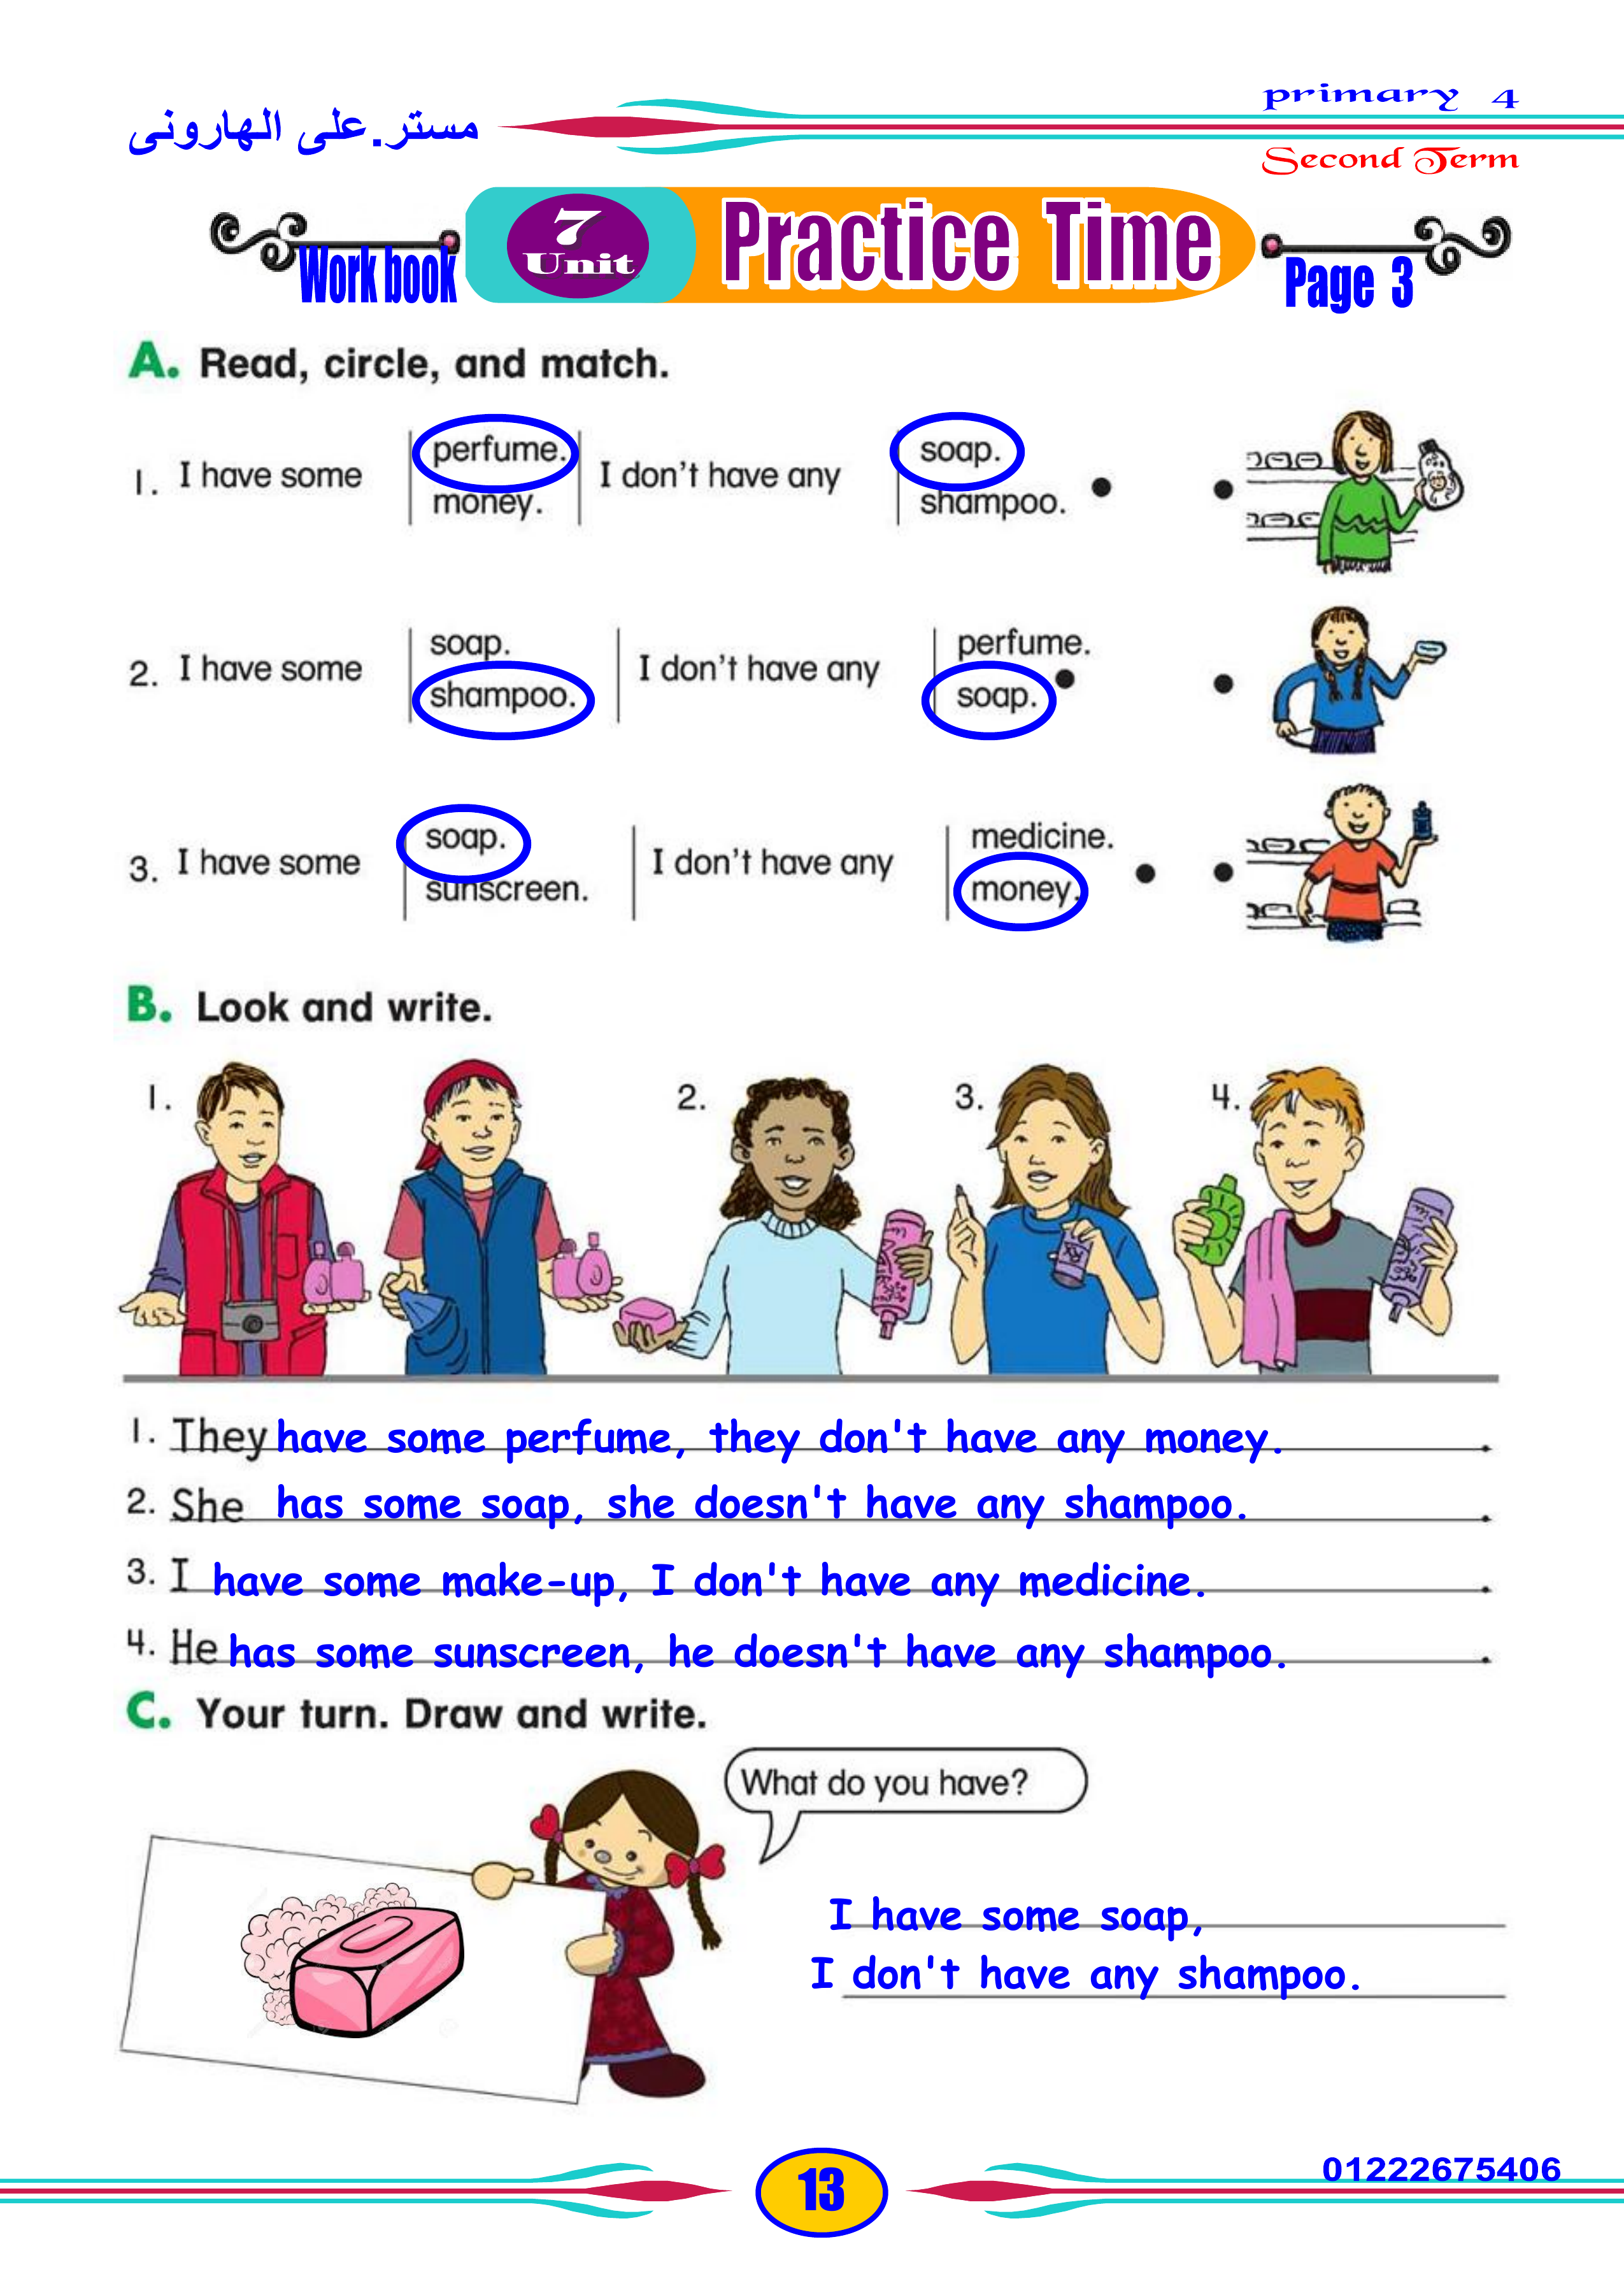 مستر.على الهارونى
primary 4
Second Term
Work book
7
Unit
Practice Time
Page 3
A. Read, circle, and match.
1. I have some perfume. money. I don't have any soap. shampoo.
2. I have some soap. shampoo. I don't have any perfume. soap.
3. I have some soap. sunscreen. I don't have any medicine. money.
B. Look and write.
1. 2. 3. 4.
1. They have some perfume, they don't have any money. .
2. She has some soap, she doesn't have any shampoo. .
3. I have some make-up, I don't have any medicine. .
4. He has some sunscreen, he doesn't have any shampoo. .
C. Your turn. Draw and write.
What do you have?
I have some soap,
I don't have any shampoo.
13
01222675406